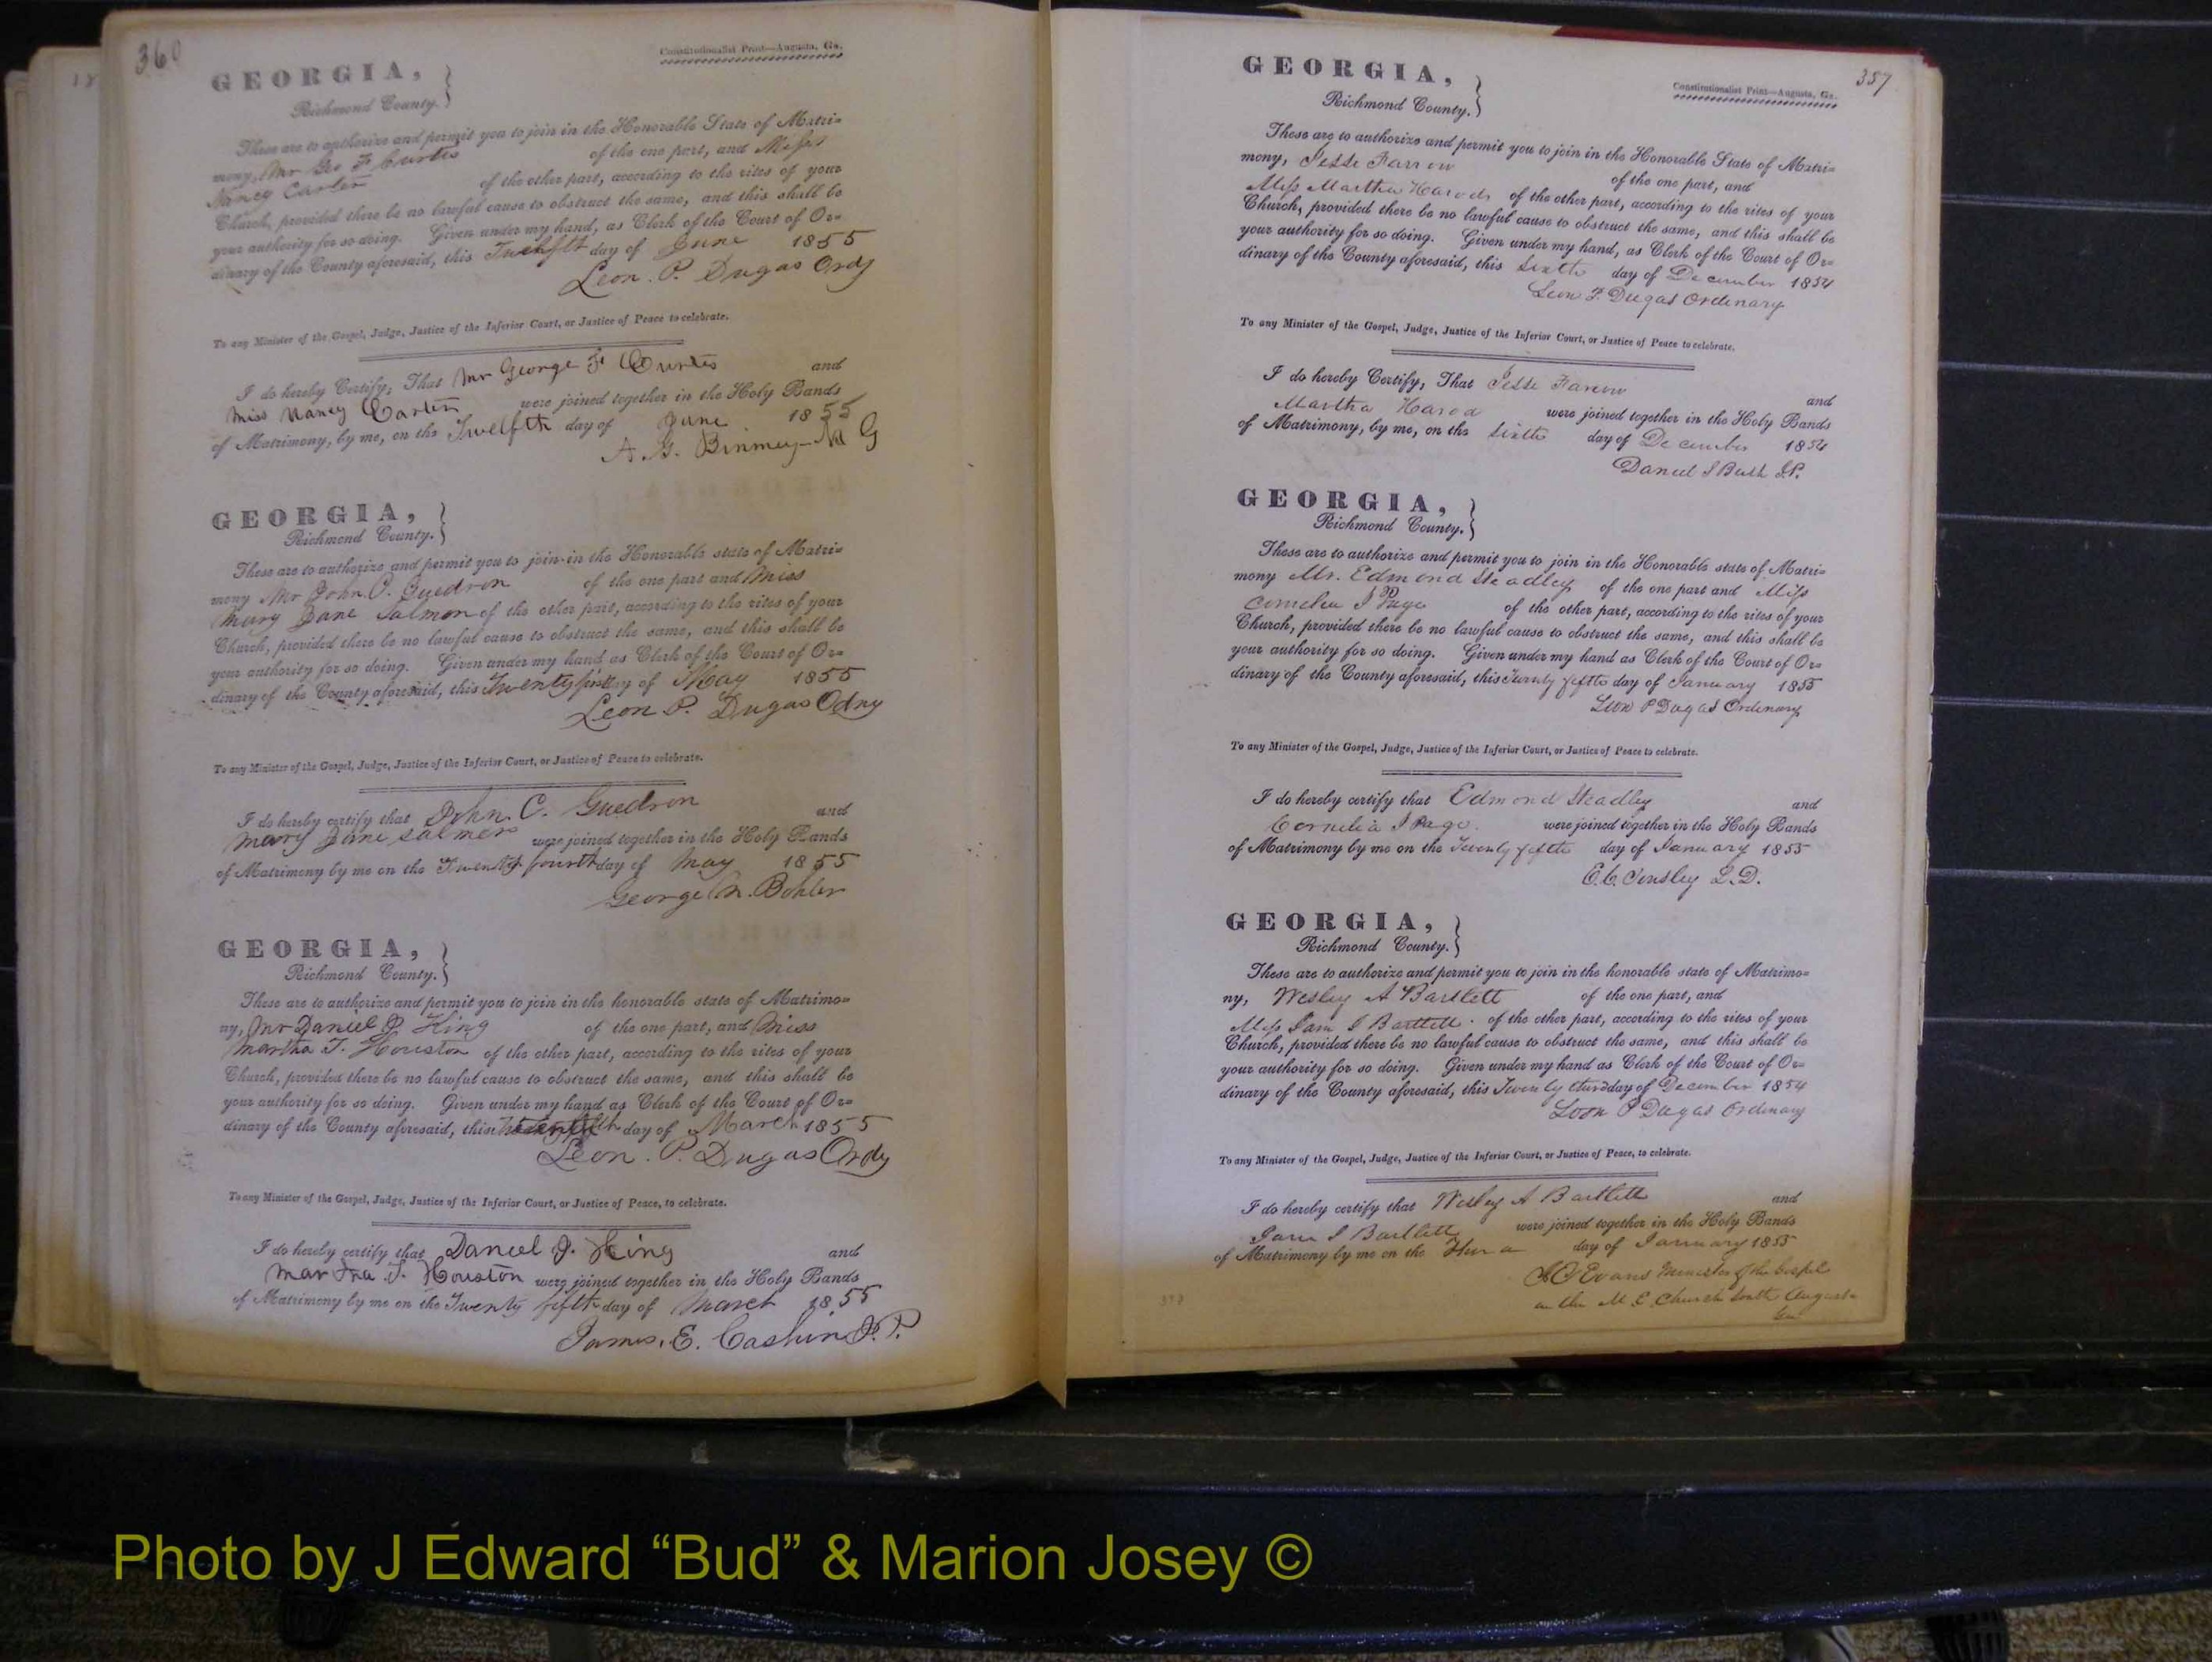 360
Constitutionalist Print—Augusta, Ga.
GEORGIA,
Richmond County.
These are to authorize and permit you to join in the Honorable State of Matri=
mony, Mr Geo F Curtis of the one part, and Miss
Nancy Carter of the other part, according to the rites of your
Church, provided there be no lawful cause to obstruct the same, and this shall be
your authority for so doing. Given under my hand, as Clerk of the Court of Or=
dinary of the County aforesaid, this Twelfth day of June 1855
Leon. P. Dugas Ordy
To any Minister of the Gospel, Judge, Justice of the Inferior Court, or Justice of Peace to celebrate.
I do hereby Certify, That Mr George F Curtis and
Miss Nancy Carter were joined together in the Holy Bands
of Matrimony, by me, on the Twelfth day of June 1855
A. G. Binmey
GEORGIA,
Richmond County.
These are to authorize and permit you to join in the Honorable state of Matri=
mony Mr John. C. Guedron of the one part and Miss
Mary Jane Salmon of the other part, according to the rites of your
Church, provided there be no lawful cause to obstruct the same, and this shall be
your authority for so doing. Given under my hand as Clerk of the Court of Or=
dinary of the County aforesaid, this Twenty first day of May 1855
Leon P. Dugas Odny
To any Minister of the Gospel, Judge, Justice of the Inferior Court, or Justice of Peace to celebrate.
I do hereby certify that John. C. Guedron and
Mary Jane Salmon were joined together in the Holy Bands
of Matrimony by me on the Twenty fourth day of May 1855
George M. Bohler
GEORGIA,
Richmond County.
These are to authorize and permit you to join in the honorable state of Matrimo=
ny, Mr Daniel J. King of the one part, and Miss
Martha T. Houston of the other part, according to the rites of your
Church, provided there be no lawful cause to obstruct the same, and this shall be
your authority for so doing. Given under my hand as Clerk of the Court of Or=
dinary of the County aforesaid, this day of March 1855
Leon. P. Dugas Ordy
To any Minister of the Gospel, Judge, Justice of the Inferior Court, or Justice of Peace, to celebrate.
I do hereby certify that Daniel J. King and
Martha T. Houston were joined together in the Holy Bands
of Matrimony by me on the Twenty fifth day of March 1855
James. E. Cashin J.P.
357
Constitutionalist Print—Augusta, Ga.
GEORGIA,
Richmond County.
These are to authorize and permit you to join in the Honorable State of Matri=
mony, Jesse Farrow of the one part, and
Miss Martha Harod of the other part, according to the rites of your
Church, provided there be no lawful cause to obstruct the same, and this shall be
your authority for so doing. Given under my hand, as Clerk of the Court of Or=
dinary of the County aforesaid, this Sixth day of December 1854
Leon P. Dugas Ordinary
To any Minister of the Gospel, Judge, Justice of the Inferior Court, or Justice of Peace to celebrate.
I do hereby Certify, That Jesse Farrow and
Martha Harod were joined together in the Holy Bands
of Matrimony, by me, on the Sixth day of December 1854
Daniel S Bush J.P.
GEORGIA,
Richmond County.
These are to authorize and permit you to join in the Honorable state of Matri=
mony Mr. Edmond Steadley of the one part and Miss
Cornelia J Page of the other part, according to the rites of your
Church, provided there be no lawful cause to obstruct the same, and this shall be
your authority for so doing. Given under my hand as Clerk of the Court of Or=
dinary of the County aforesaid, this Twenty fifth day of January 1855
Leon P Dugas Ordinary
To any Minister of the Gospel, Judge, Justice of the Inferior Court, or Justice of Peace to celebrate.
I do hereby certify that Edmond Steadley and
Cornelia J Page were joined together in the Holy Bands
of Matrimony by me on the Twenty fifth day of January 1855
E.C. Tinsley L.D.
GEORGIA,
Richmond County.
These are to authorize and permit you to join in the honorable state of Matrimo=
ny, Wesley A Bartlett of the one part, and
Miss J Bartlett of the other part, according to the rites of your
Church, provided there be no lawful cause to obstruct the same, and this shall be
your authority for so doing. Given under my hand as Clerk of the Court of Or=
dinary of the County aforesaid, this Twenty third day of December 1854
Leon P Dugas Ordinary
To any Minister of the Gospel, Judge, Justice of the Inferior Court, or Justice of Peace, to celebrate.
I do hereby certify that Wesley A Bartlett and
J Bartlett were joined together in the Holy Bands
of Matrimony by me on the day of January 1855
Evans Minister of the Gospel
in the M. E. Church South Augusta
Ga
Photo by J Edward “Bud” & Marion Josey ©